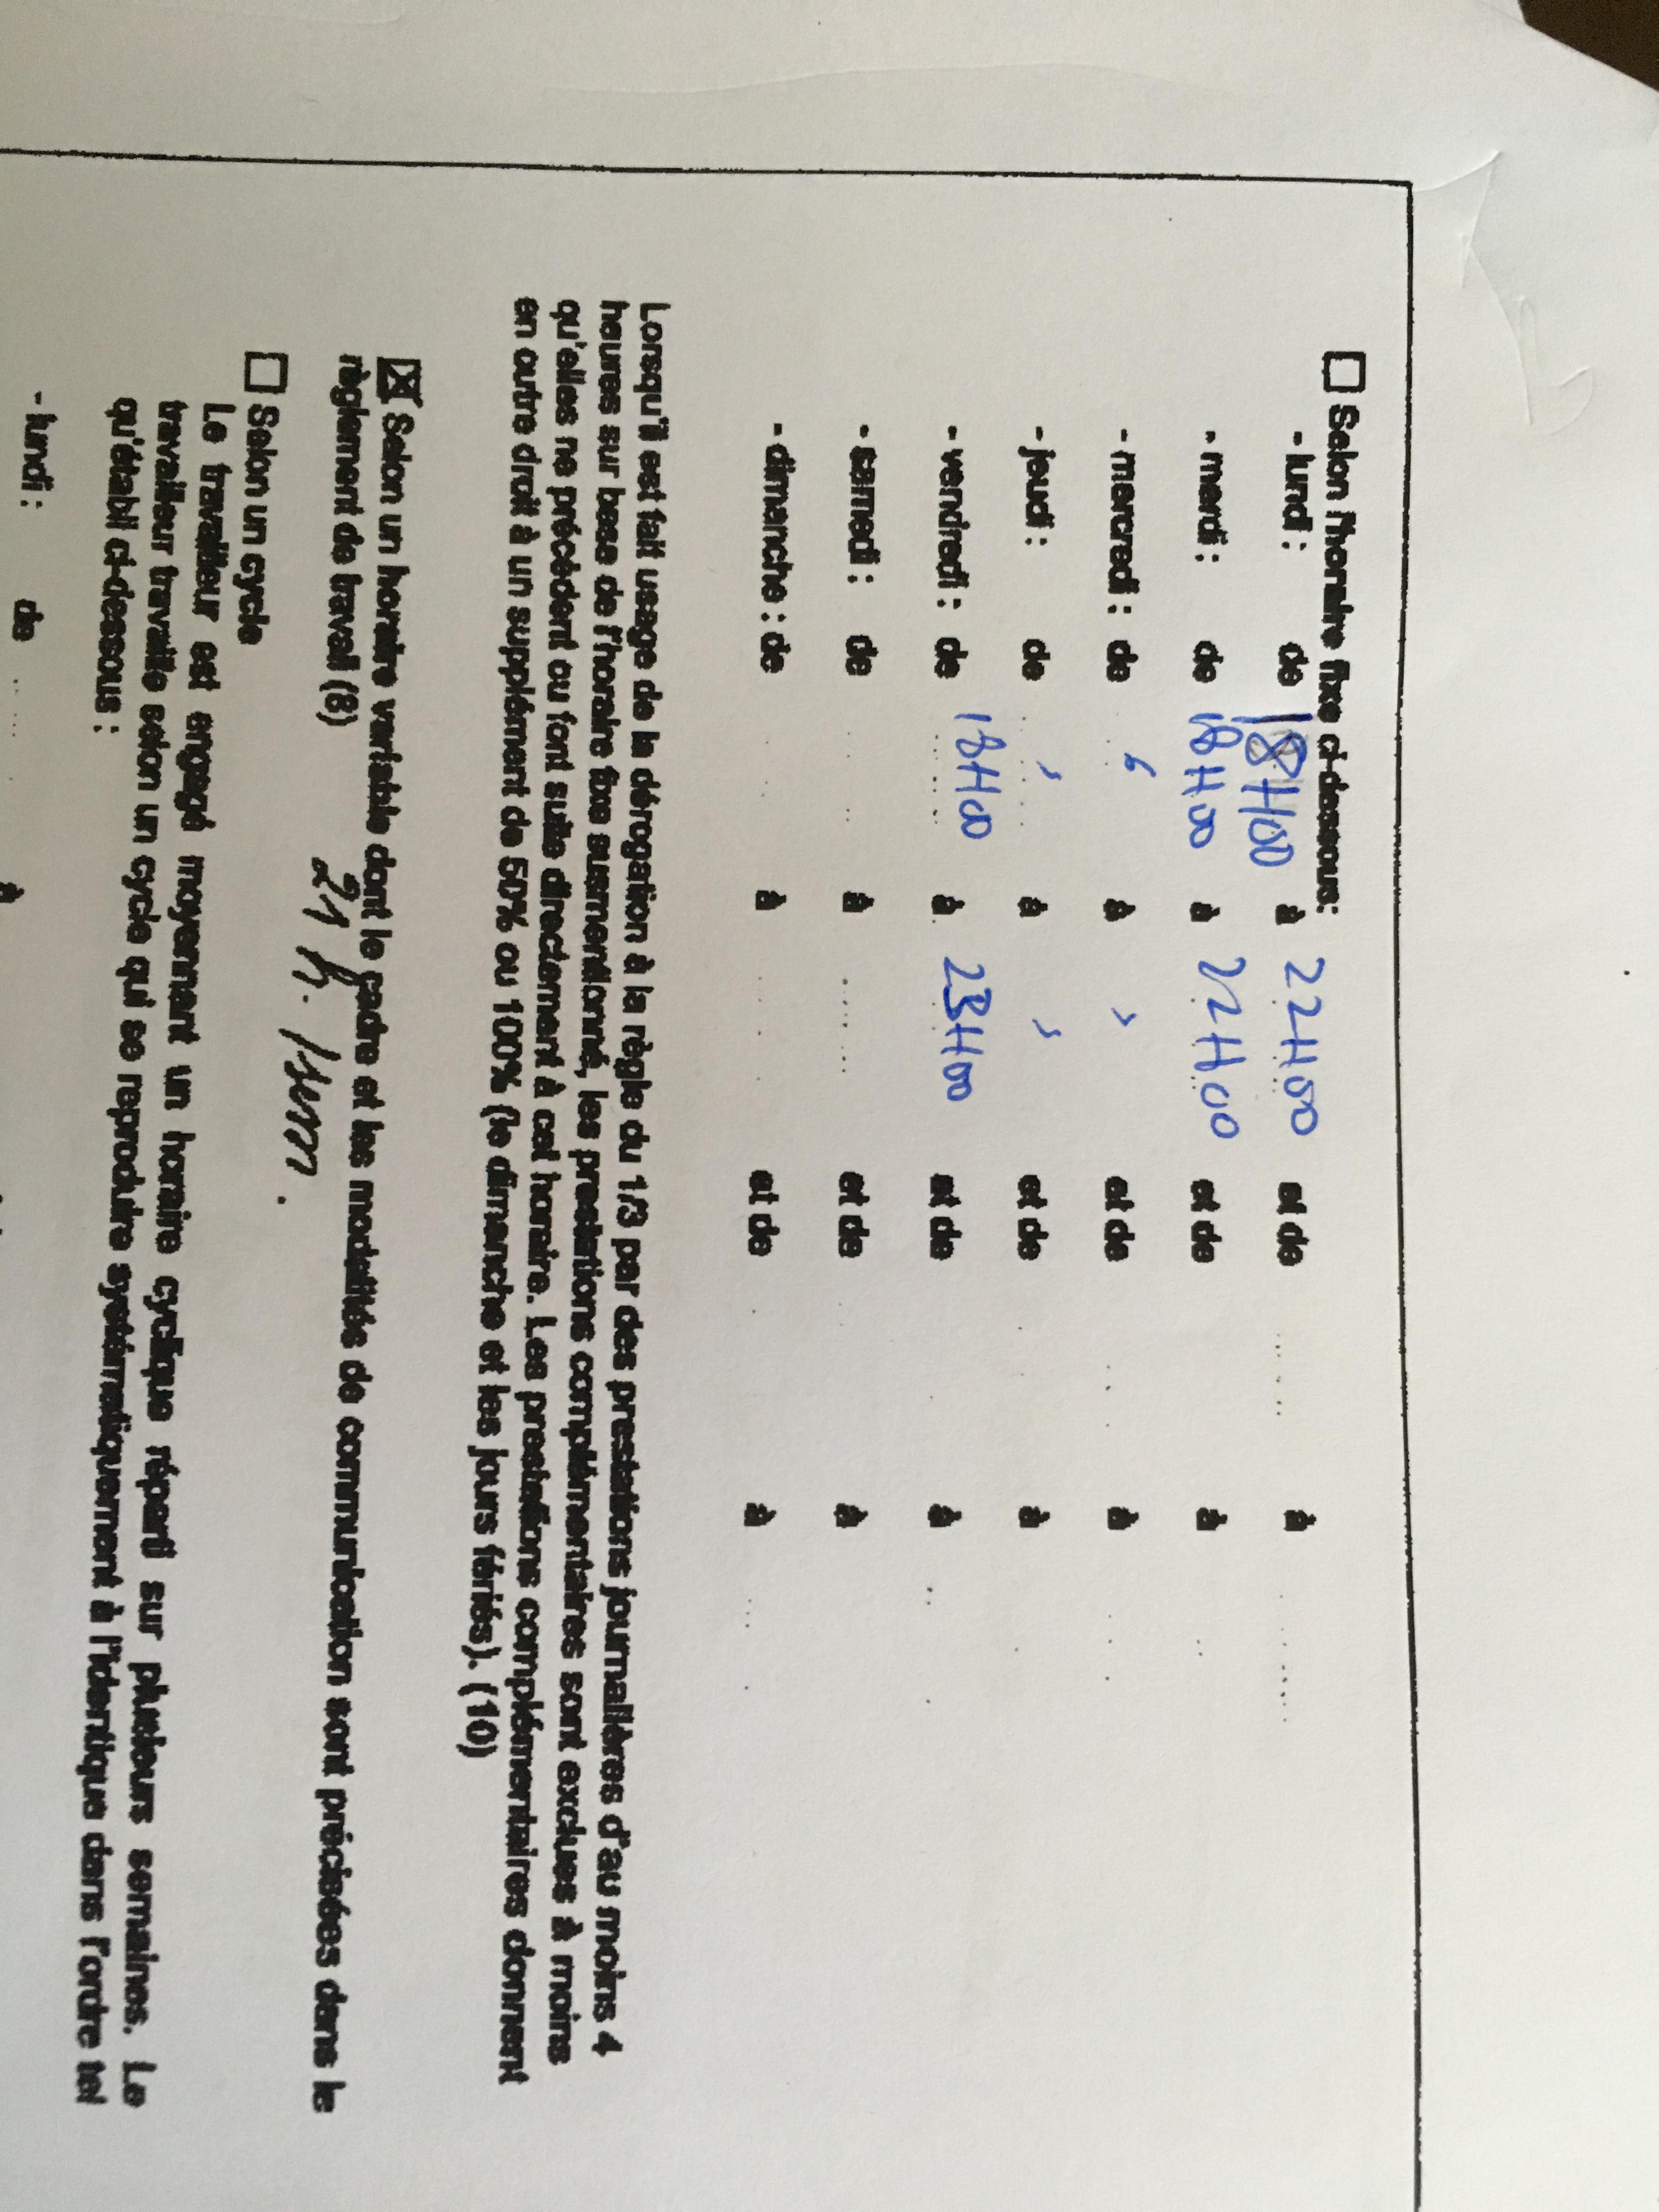 ☐ Selon l'horaire fixe ci-dessous:
- lundi : de 18H00 à 22H00 et de ..... à .....
- mardi : de 18H00 à 22H00 et de à ..
- mercredi : de " à " et de .. à ..
- jeudi : de " à " et de . à .
- vendredi : de 18H00 à 23H00 et de .. à ...
- samedi : de .. à ..... et de . à
- dimanche : de .. à ... et de . à ....
Lorsqu'il est fait usage de la dérogation à la règle du 1/3 par des prestations journalières d'au moins 4
heures sur base de l'horaire fixe susmentionné, les prestations complémentaires sont exclues à moins
qu'elles ne précèdent ou font suite directement à cet horaire. Les prestations complémentaires donnent
en outre droit à un supplément de 50% ou 100% (le dimanche et les jours fériés). (10)
☒ Selon un horaire variable dont le cadre et les modalités de communication sont précisées dans le
règlement de travail (8) 21 h. /sem.
☐ Selon un cycle
Le travailleur est engagé moyennant un horaire cyclique réparti sur plusieurs semaines. Le
travailleur travaille selon un cycle qui se reproduire systématiquement à l'identique dans l'ordre tel
qu'établi ci-dessous :
- lundi : de ... ... à